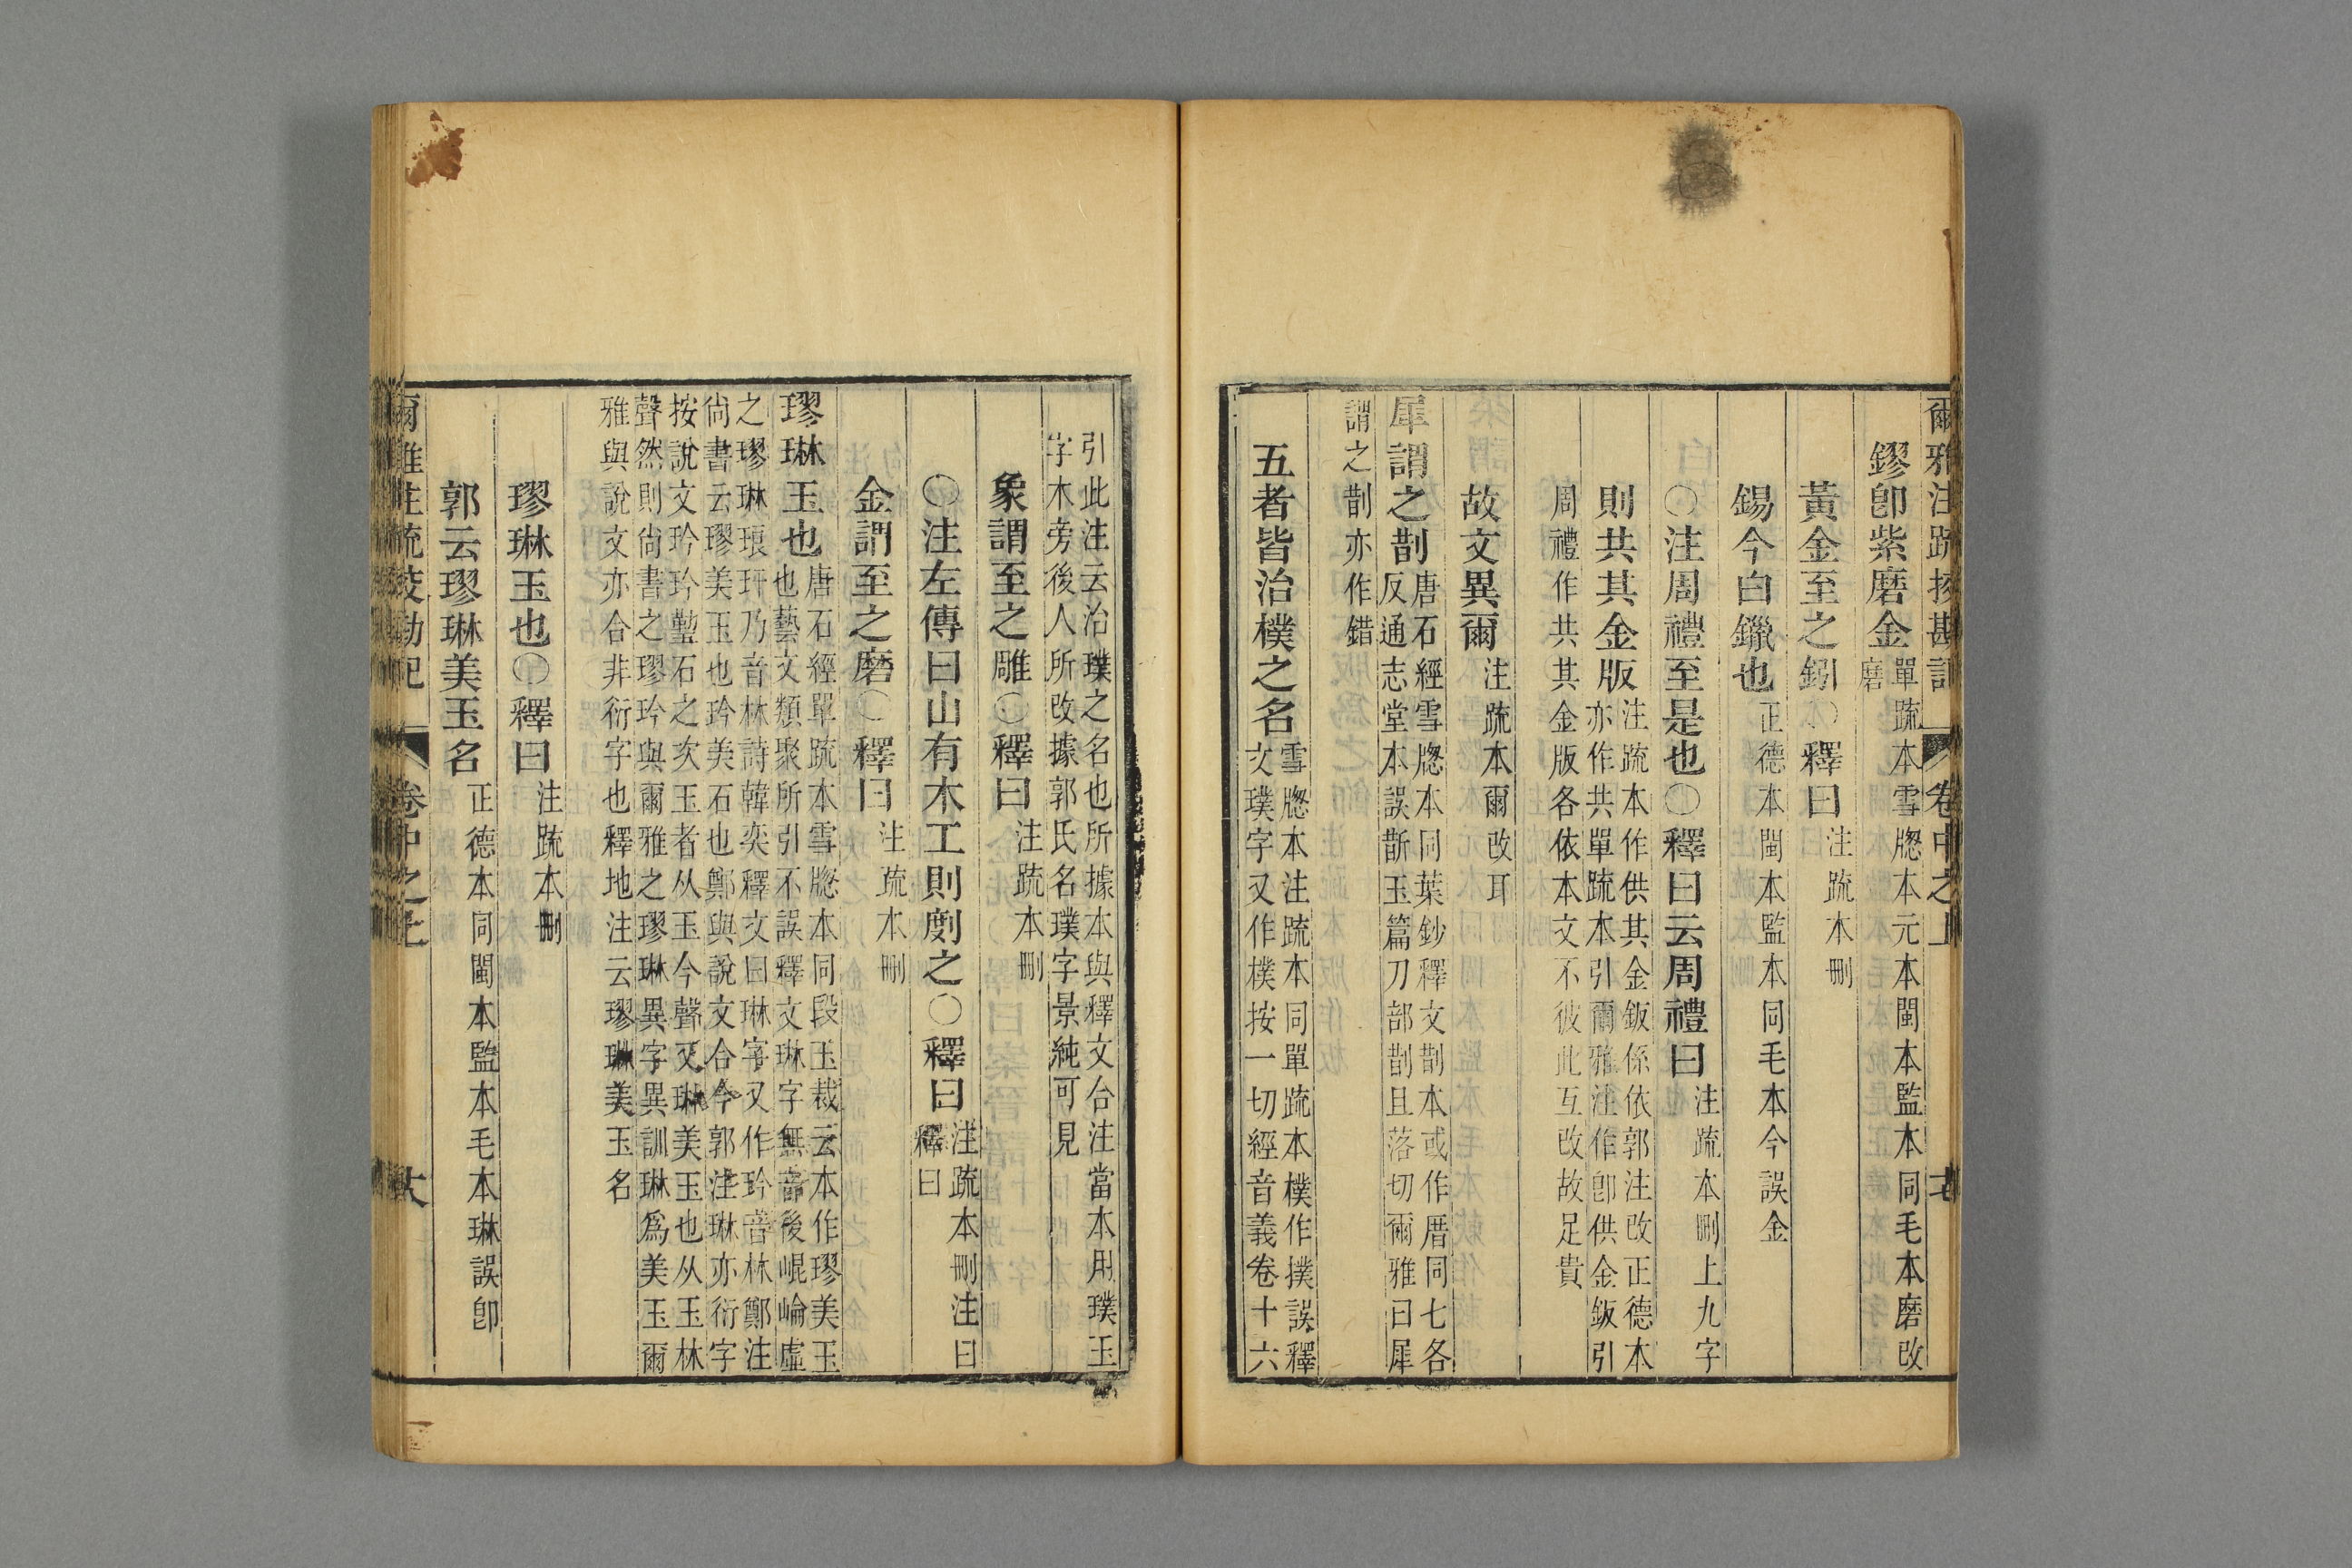 爾雅注疏挍勘記 卷中之上 七
鏐卽紫磨金單疏本雪牕本元本閩本監本同毛本磨改
磨
黃金至之鉛○釋曰注疏本刪
錫今白鑞也正德本閩本監本同毛本今誤金
○注周禮至是也○釋曰云周禮曰注疏本刪上九字
則共其金版注疏本作供其金鈑係依郭注改正德本
亦作共單疏本引爾雅注作卽供金鈑引
周禮作共其金版各依本文不彼此互改故足貴
故文異爾注疏本爾改耳
犀謂之剒唐石經雪牕本同葉鈔釋文剒本或作厝同七各
反通志堂本誤斮玉篇刀部剒且落切爾雅曰犀
謂之剒亦作錯
五者皆治樸之名雪牕本注疏本同單疏本樸作撲誤釋
文璞字又作樸按一切經音義卷十六
引此注云治璞之名也所據本與釋文合注當本用璞玉
字木旁後人所改據郭氏名璞字景純可見
象謂至之雕○釋曰注疏本刪
○注左傳曰山有木工則剫之○釋曰注疏本刪注曰
釋曰
金謂至之磨○釋曰注疏本刪
璆琳玉也唐石經單疏本雪牕本同段玉裁云本作璆美玉
也藝文類聚所引不誤釋文琳字無音後崐崘虛
之璆琳琅玕乃音林詩韓奕釋文曰琳字又作玪音林鄭注
尙書云璆美玉也玪美石也鄭與說文合今郭注琳亦衍字
按說文玪玪䥭石之次玉者从玉今聲又琳美玉也从玉林
聲然則尙書之璆玪與爾雅之璆琳異字異訓琳爲美玉爾
雅與說文亦合非衍字也釋地注云璆琳美玉名
璆琳玉也○釋曰注疏本刪
郭云璆琳美玉名正德本同閩本監本毛本琳誤卽
爾雅注疏挍勘記 卷中之上 大